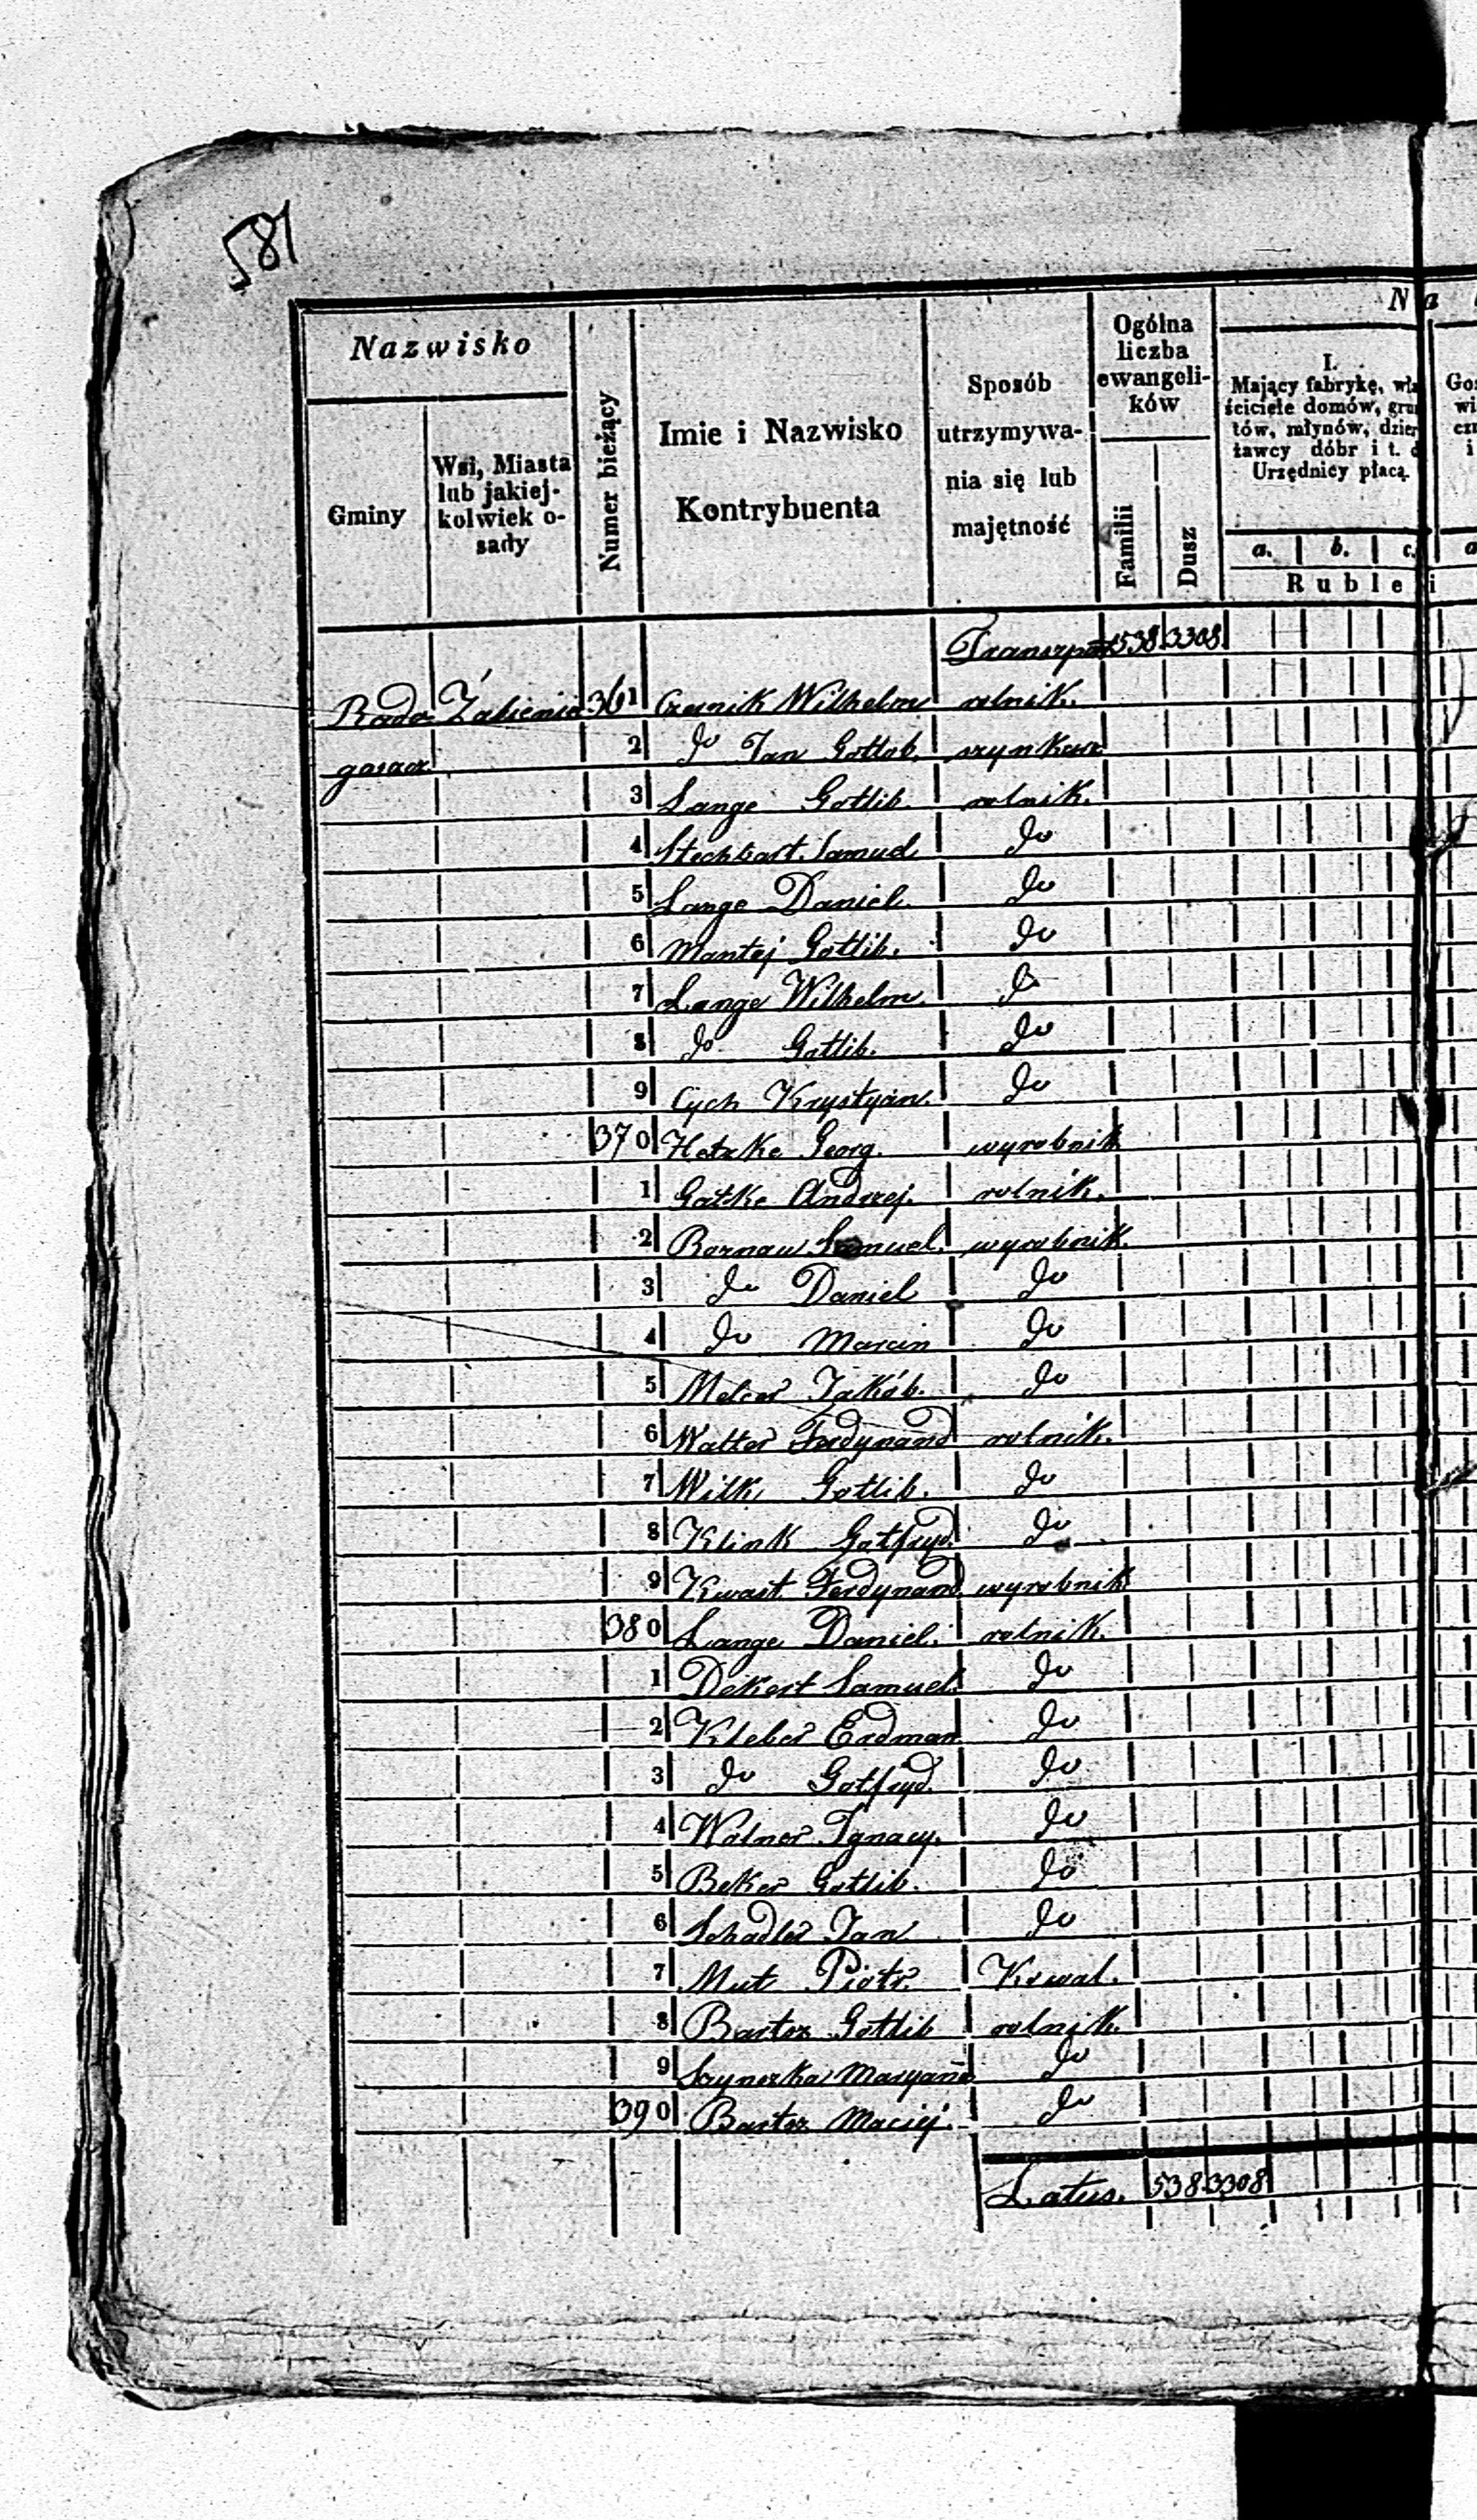 587
Na
Nazwisko
Gminy
Wsi, Miasta
lub jakiej-
kolwiek o-
sady
Numer bieżący
Imie i Nazwisko
Kontrybuenta
Sposób
utrzymywa-
nia się lub
majętność
Ogólna
liczba
ewangeli-
ków
Familii
Dusz
I.
Mający fabrykę, wła
ściciele domów, grun
tów, młynów, dzier
tawcy dóbr i t. d
Urzędnicy płacą.
a. b. c.
Ruble i
Transport 538 3308
Rado Żabieniec 361 Czernik Wilhelm rolnik.
goszcz 2 do Jan Gottlob. szynkarz
3 Lange Gotlib. rolnik.
4 Stechbart Samuel do
5 Lange Daniel. do
6 Mantej Gotlib. do
7 Lange Wilhelm. do
8 do Gotlib. do
9 Cych Krystyan. do
370 Hetzke Georg. wyrobnik
1 Gatzke Andrzej. rolnik.
2 Bornau Samuel. wyrobnik.
3 do Daniel do
4 do Marcin do
5 Melcer Jakób. do
6 Walter Ferdynand rolnik.
7 Wilk Gotlib. do
8 Klink Gotfryd. do
9 Kwast Ferdynand wyrobnik
380 Lange Daniel. rolnik.
1 Dekert Samuel. do
2 Kleber Erdman do
3 do Gotfryd. do
4 Wolner Ignacy. do
5 Beker Gotlib. do
6 Schadler Jan do
7 Mut Piotr. Kowal.
8 Bartsz Gotlib rolnik.
9 Szynezka Maryana do
390 Bartsz Maciej. do
Latus. 538 3308